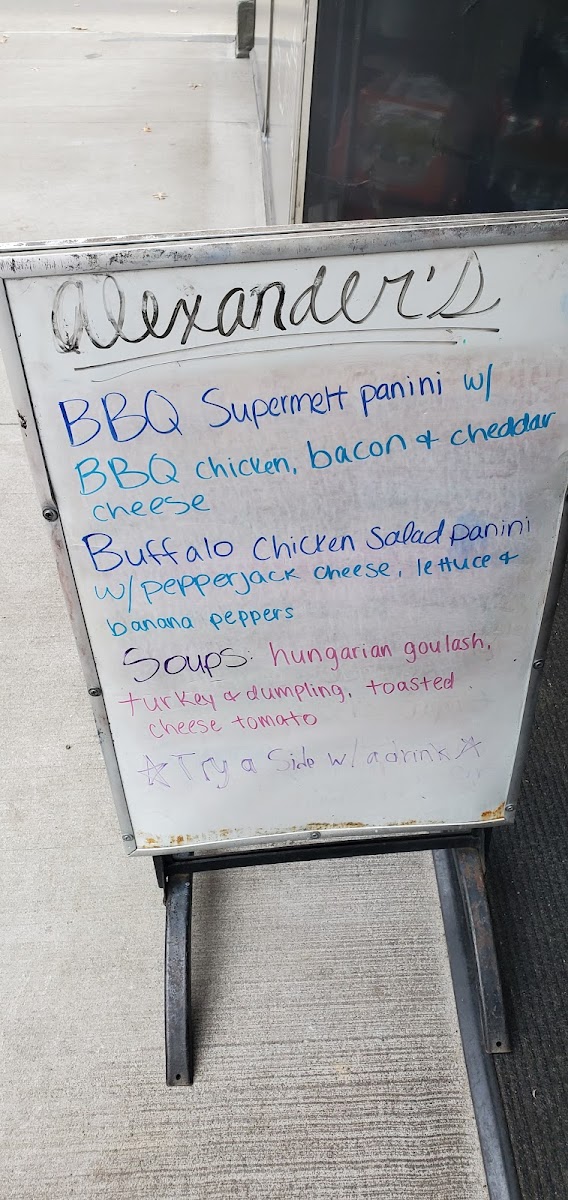 Alexander's
BBQ Supermelt panini w/
BBQ chicken, bacon & cheddar
cheese
Buffalo Chicken Salad panini
w/pepperjack cheese, lettuce &
banana peppers
Soups: hungarian goulash,
turkey & dumpling, toasted
cheese tomato
☆Try a Side w/ a drink☆